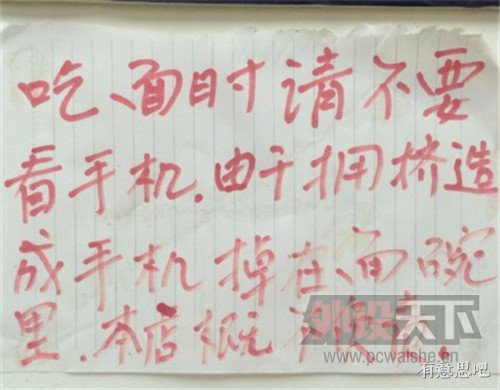 吃面时请不要
看手机.由于拥挤造
成手机掉在面碗
里.本店概不负责。
外设天下
www.pcwaishe.cn
有意思吧